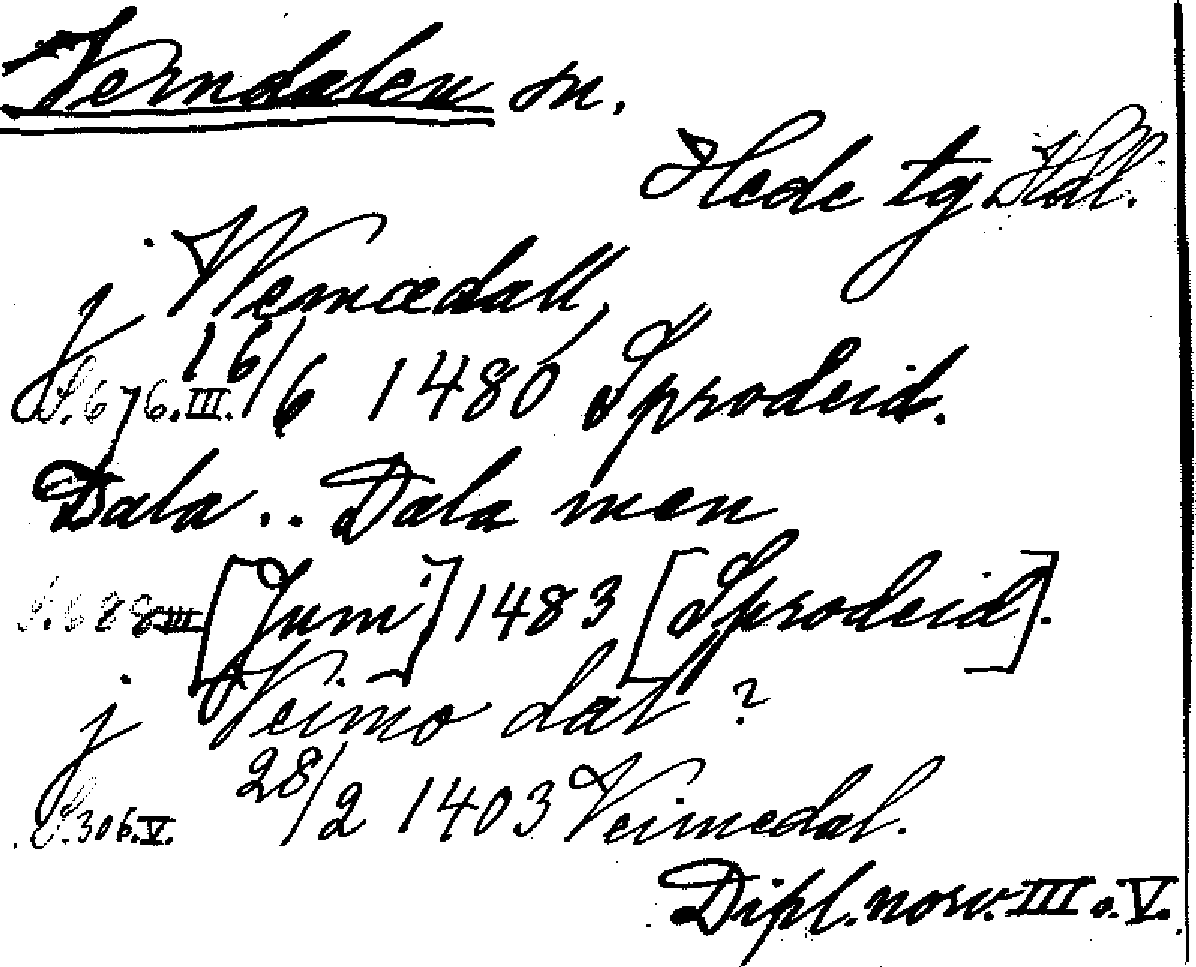 Verndalen sn.
Hede tg Hdl.
j Wemædall,
S. 676. III. 16/6 1480 Sprodeid.
Dala .. Dala men
S. 688 III [Juni] 1483 [Sprodeid].
j Veimo dal ?
S. 306. V. 28/2 1403 Veimedal.
Dipl. norv. III o. V.